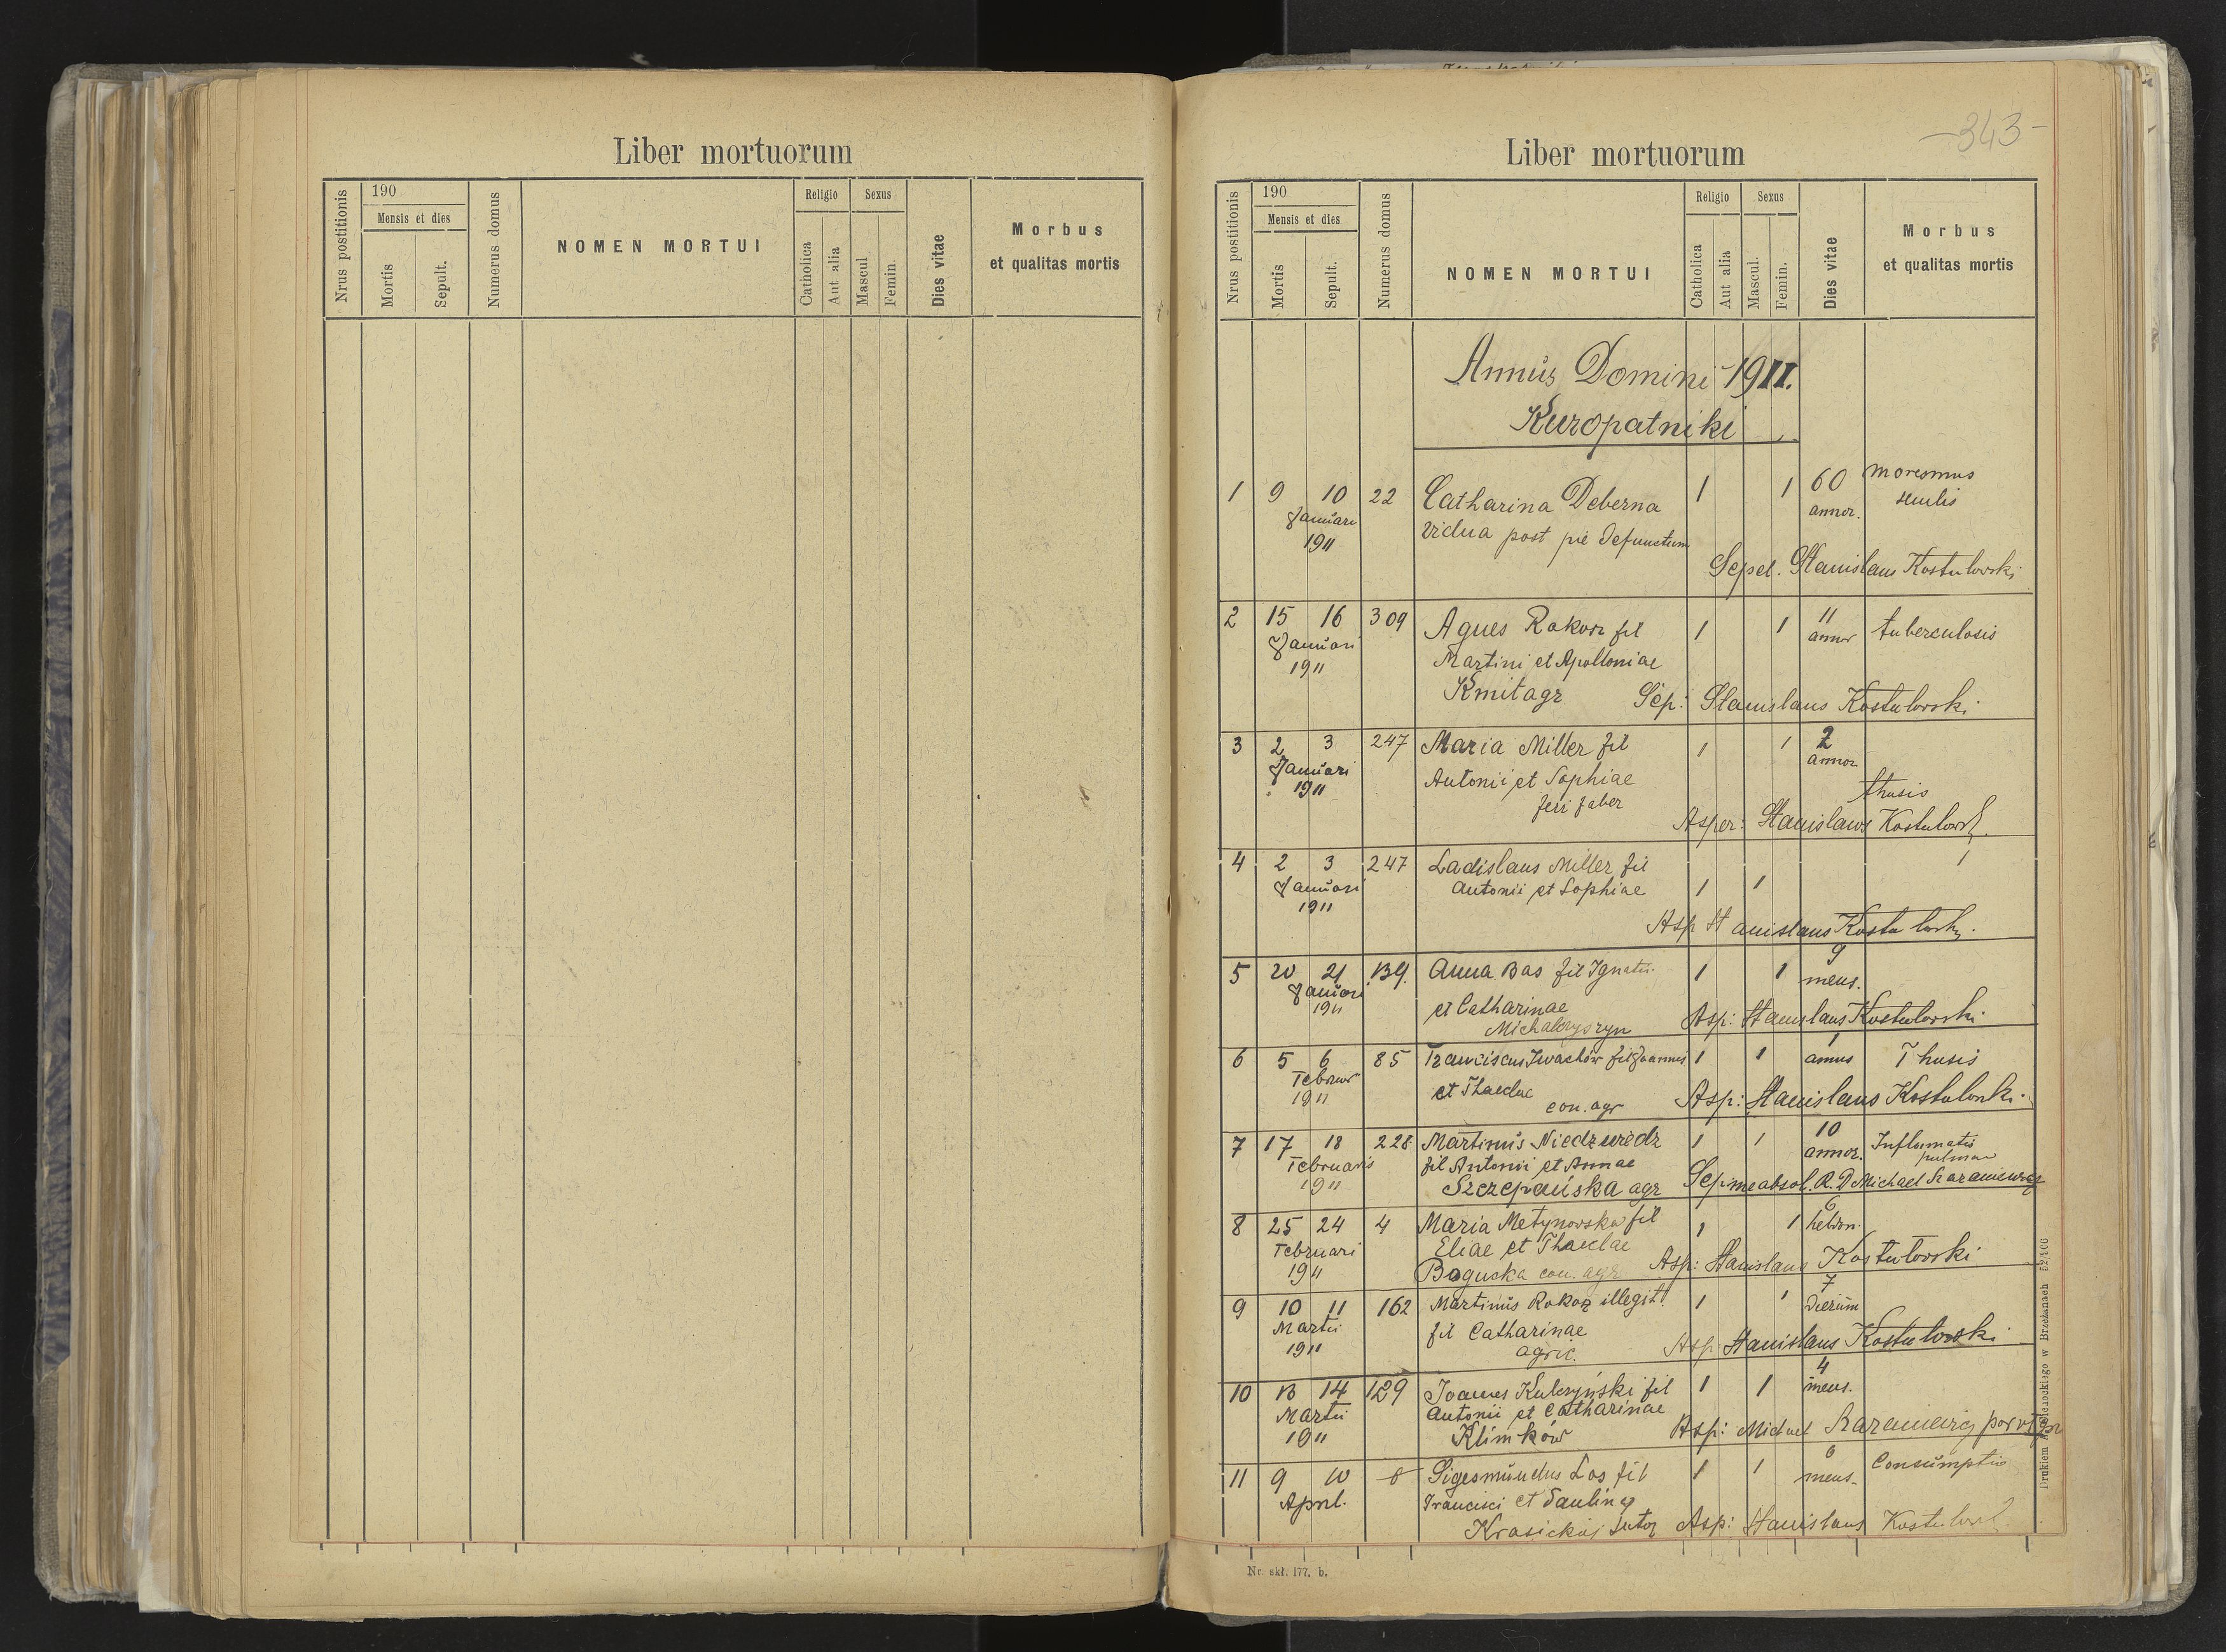 Liber mortuorum
Nrus postitionis
190
Mensis et dies
Mortis
Sepult.
Numerus domus
NOMEN MORTUI
Religio
Catholica
Aut alia
Sexus
Mascul
Femin.
Dies vitae
Morbus
et qualitas mortis
-343-
Liber mortuorum
Nrus postitionis
190
Mensis et dies
Mortis
Sepult.
Numerus domus
NOMEN MORTUI
Religio
Catholica
Aut alia
Sexus
Mascul.
Femin.
Dies vitae
Morbus
et qualitas mortis
Annus Domini 1911.
Kuropatniki
1 9 10 22 Catharina Deberna 1 1 60 annor.
senilis
Januari 1911
vidua post pie defunctum
Sepel. Stanislaus Kostulowski
2 15 16 309 Agnes Rakow fil 1 1 11 annor tuberculosis
Januari
Martini et Apolloniae
1911
Kmit agr Sep: Stanislaus Kostulowski
3 2 3 247 Maria Miller fil 1 1 2 annor
Januari
Antonii et Sophiae
1911
feri faber
thusis
Asper: Stanislaus Kostulowski
4 2 3 247 Ladislaus Miller fil 1
Januari
Antonii et Sophiae 1 1
1911
Asp Stanislaus Kostulowski
5 20 21 139. Anna Bas fil Ignatii 1 1 9 mens.
Januari
1911
et Catharinae
Asp: Stanislaus Kostulowski
6 5 6 85 Franciscus Iwachów fil Joannis 1 1 1 annus Thusis
Februar
1911
et Thaeclae
con. agr Asp: Stanislaus Kostulowski
7 17 18 228 Martinus Niedzwiedz 1 1 10 annor. Inflamatio
pulmon
Februaris
fil Antonii et Annae
1911
Szczepańska agr Sep. me absol. R. D Michael
8 25 24 4 Maria Metynowska fil 1 1 6 hebdom.
Februari
Eliae et Thaeclae
1911
Boguska con. agr Asp: Stanislaus Kostulowski
9 10 11 162 Martinus Rokoz illegit. 1 1 7 dierum
Martii
fil Catharinae
1911
agric. Asp Stanislaus Kostulowski
10 13 14 129 Joannes Kulczyński fil 1 1 4 mens.
Martii
Antonii et Catharinae
1911
Klimków Asp: Michael
11 9 10 8 Sigesmundus Los fil 1 1 6 mens. Consumptio
April.
Francisci et Paulina
Krasickoj sutor Asp: Stanislaus Kostulowski
w Brzeżanach 52/106
Nr. skł. 177. b.